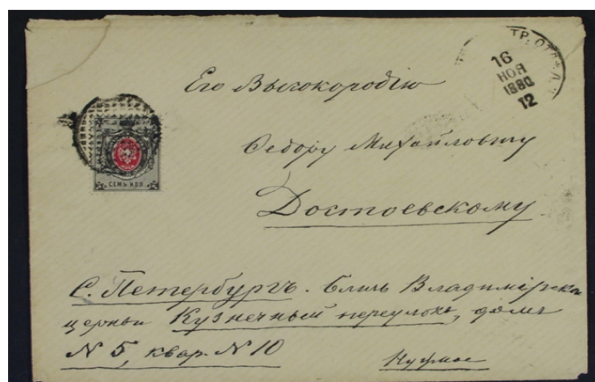 16
НОЯ
1880
12
Его Высокородію
СЕМЬ КОП.
Ѳедору Михайловичу
Достоевскому
С. Петербургъ. близь Владимірской
церкви Кузнечный переулокъ, домъ
N 5, квар. N 10